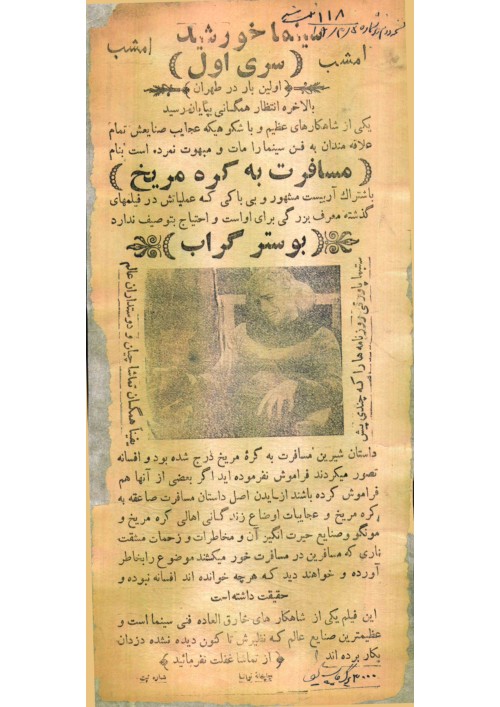 ۱۱۸
سینما خورشید
امشب
امشب
(سری اول)
(اولین بار در طهران)
بالاخره انتظار همگانی بپایان رسید
یکی از شاهکارهای عظیم و با شکوهیکه عجایب صنایعش تمام
علاقه مندان به فن سینما را مات و مبهوت نمرده است بنام
(مسافرت به کره مریخ)
باشتراك آرتیست مشهور و بی باکی که عملیاتش در فیلمهای
گذشته معرف بزرگی برای اواست و احتیاج بتوصیف ندارد
(بوستر گراب)
سینما پاورقی روزنامه ها را که چندی پیش
یقیناً همگان تماشا چیان و دوستداران عالم
داستان شیرین مسافرت به کرهٔ مریخ درج شده بود و افسانه
تصور میکردند فراموش نفرموده اید اگر بعضی از آنها هم
فراموش کرده باشند ازدیدن اصل داستان مسافرت صاعقه به
کره مریخ و عجایبات اوضاع زندگانی اهالی کره مریخ و
مونگو وصنایع حیرت انگیز آن و مخاطرات و زحمات مشقت
باری که مسافرین در مسافرت خور میکشند موضوع رابخاطر
آورده و خواهند دید که هرچه خوانده اند افسانه نبوده و
حقیقت داشته است
این فیلم یکی از شاهکار های خارق العاده فنی سینما است و
عظیمترین صنایع عالم که نظیرش تا کنون دیده نشده دزدان
بکار برده اند
(از تماشا غفلت نفرمائید)
۳۰۰۰